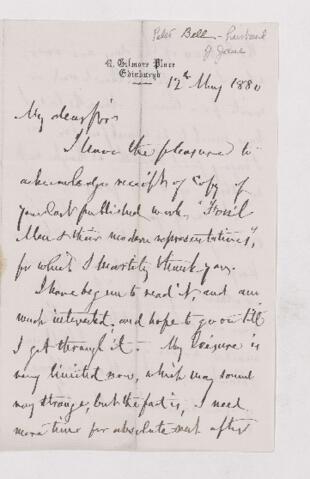 Peter Bell - husband
of Jane
42 Gilmore Place
Edinburgh
12th May 1880
My dear Sir
I have the pleasure to
acknowledge receipt of copy of
your last published work, "Fossil
Men & their modern representatives",
for which I heartily thank you.
I have begun to read it, and am
much interested, and hope to go on till
I get through it - My leisure is
very limited now, which may sound
very strange, but the fact is, I need
more time for absolute rest after